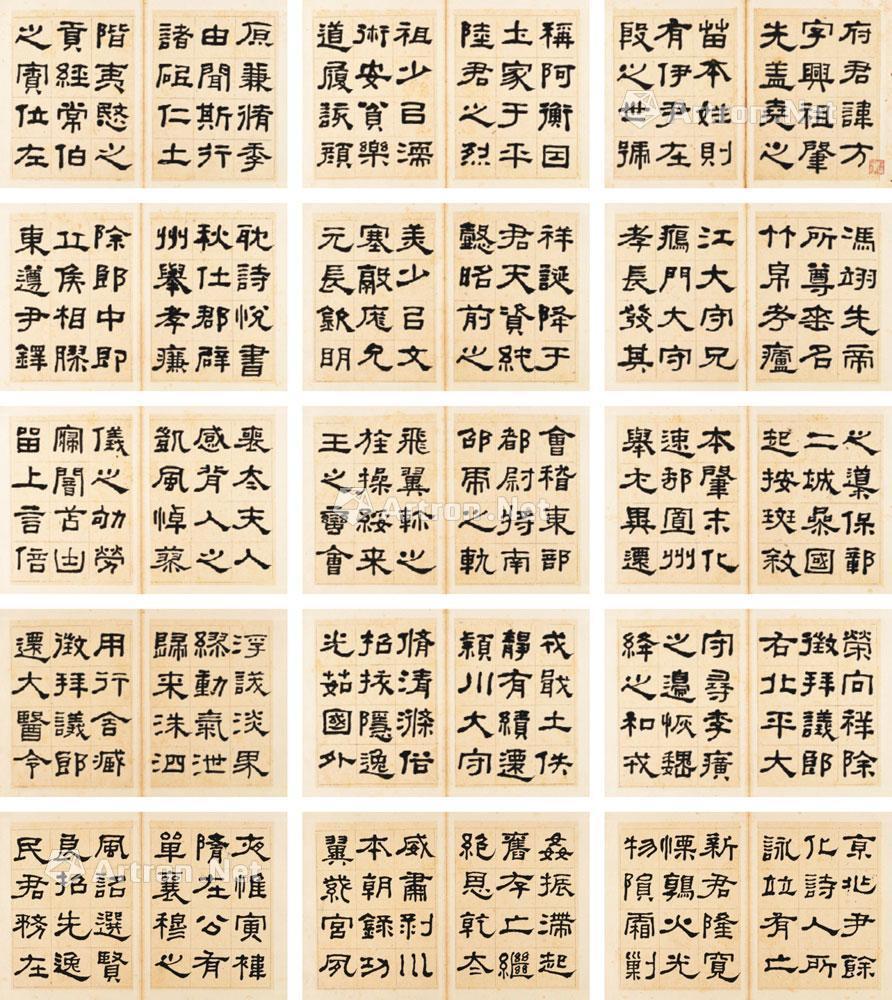 府君諱方
字興祖肇
先蓋堯之
苗本姓則
有伊尹在
殷之世號
稱阿衡因
土家于平
陸君之烈
祖少吕濡
術安貧樂
道履該顏
原兼脩季
由聞斯行
諸砠仁土
階夷愍之
貢經常伯
之寮位左
馮翊先帝
所尊垂名
竹帛考廬
江大守兄
鴈門大守
孝長發其
祥誕降于
君天資純
懿昭前之
美少吕文
塞敵庬允
元長欽明
耽詩悅書
秋仕郡辟
州舉孝廉
除郎中即
丘侯相膠
東遵尹鐸
之導保鄣
二城參國
起按斑敘
本肇末化
速郵置州
舉尤異遷
會稽東部
都尉將南
邵虎之軌
飛翼軫之
旌操綏來
王之蠻會
喪太夫人
感背人之
凱風悼蓼
儀之劬勞
寎闇苫凷
留上言倍
榮向祥除
徵拜議郎
右北平大
守尋李廣
之邊恢魏
絳之和戎
戎戢士佚
靜有績遷
潁川大守
脩清滌俗
招拔隱逸
光茹國外
浮談淡界
繆動氣泄
歸來洙泗
用行舍臧
徵拜議郎
遷大醫令
京兆尹餘
化詩人所
詠並有亡
新君隆寬
慄鶉火光
物隕霜剿
姦振滯起
舊存亡繼
絕恩乾太
威肅剝川
本朝錄功
翼就宮夙
夜惟寅褘
隋在公有
單襄穆之
風詔選賢
良招先逸
民君務在
Artron.Net
Artron.Net
Artron.Net
Artron.Net
Artron.Net